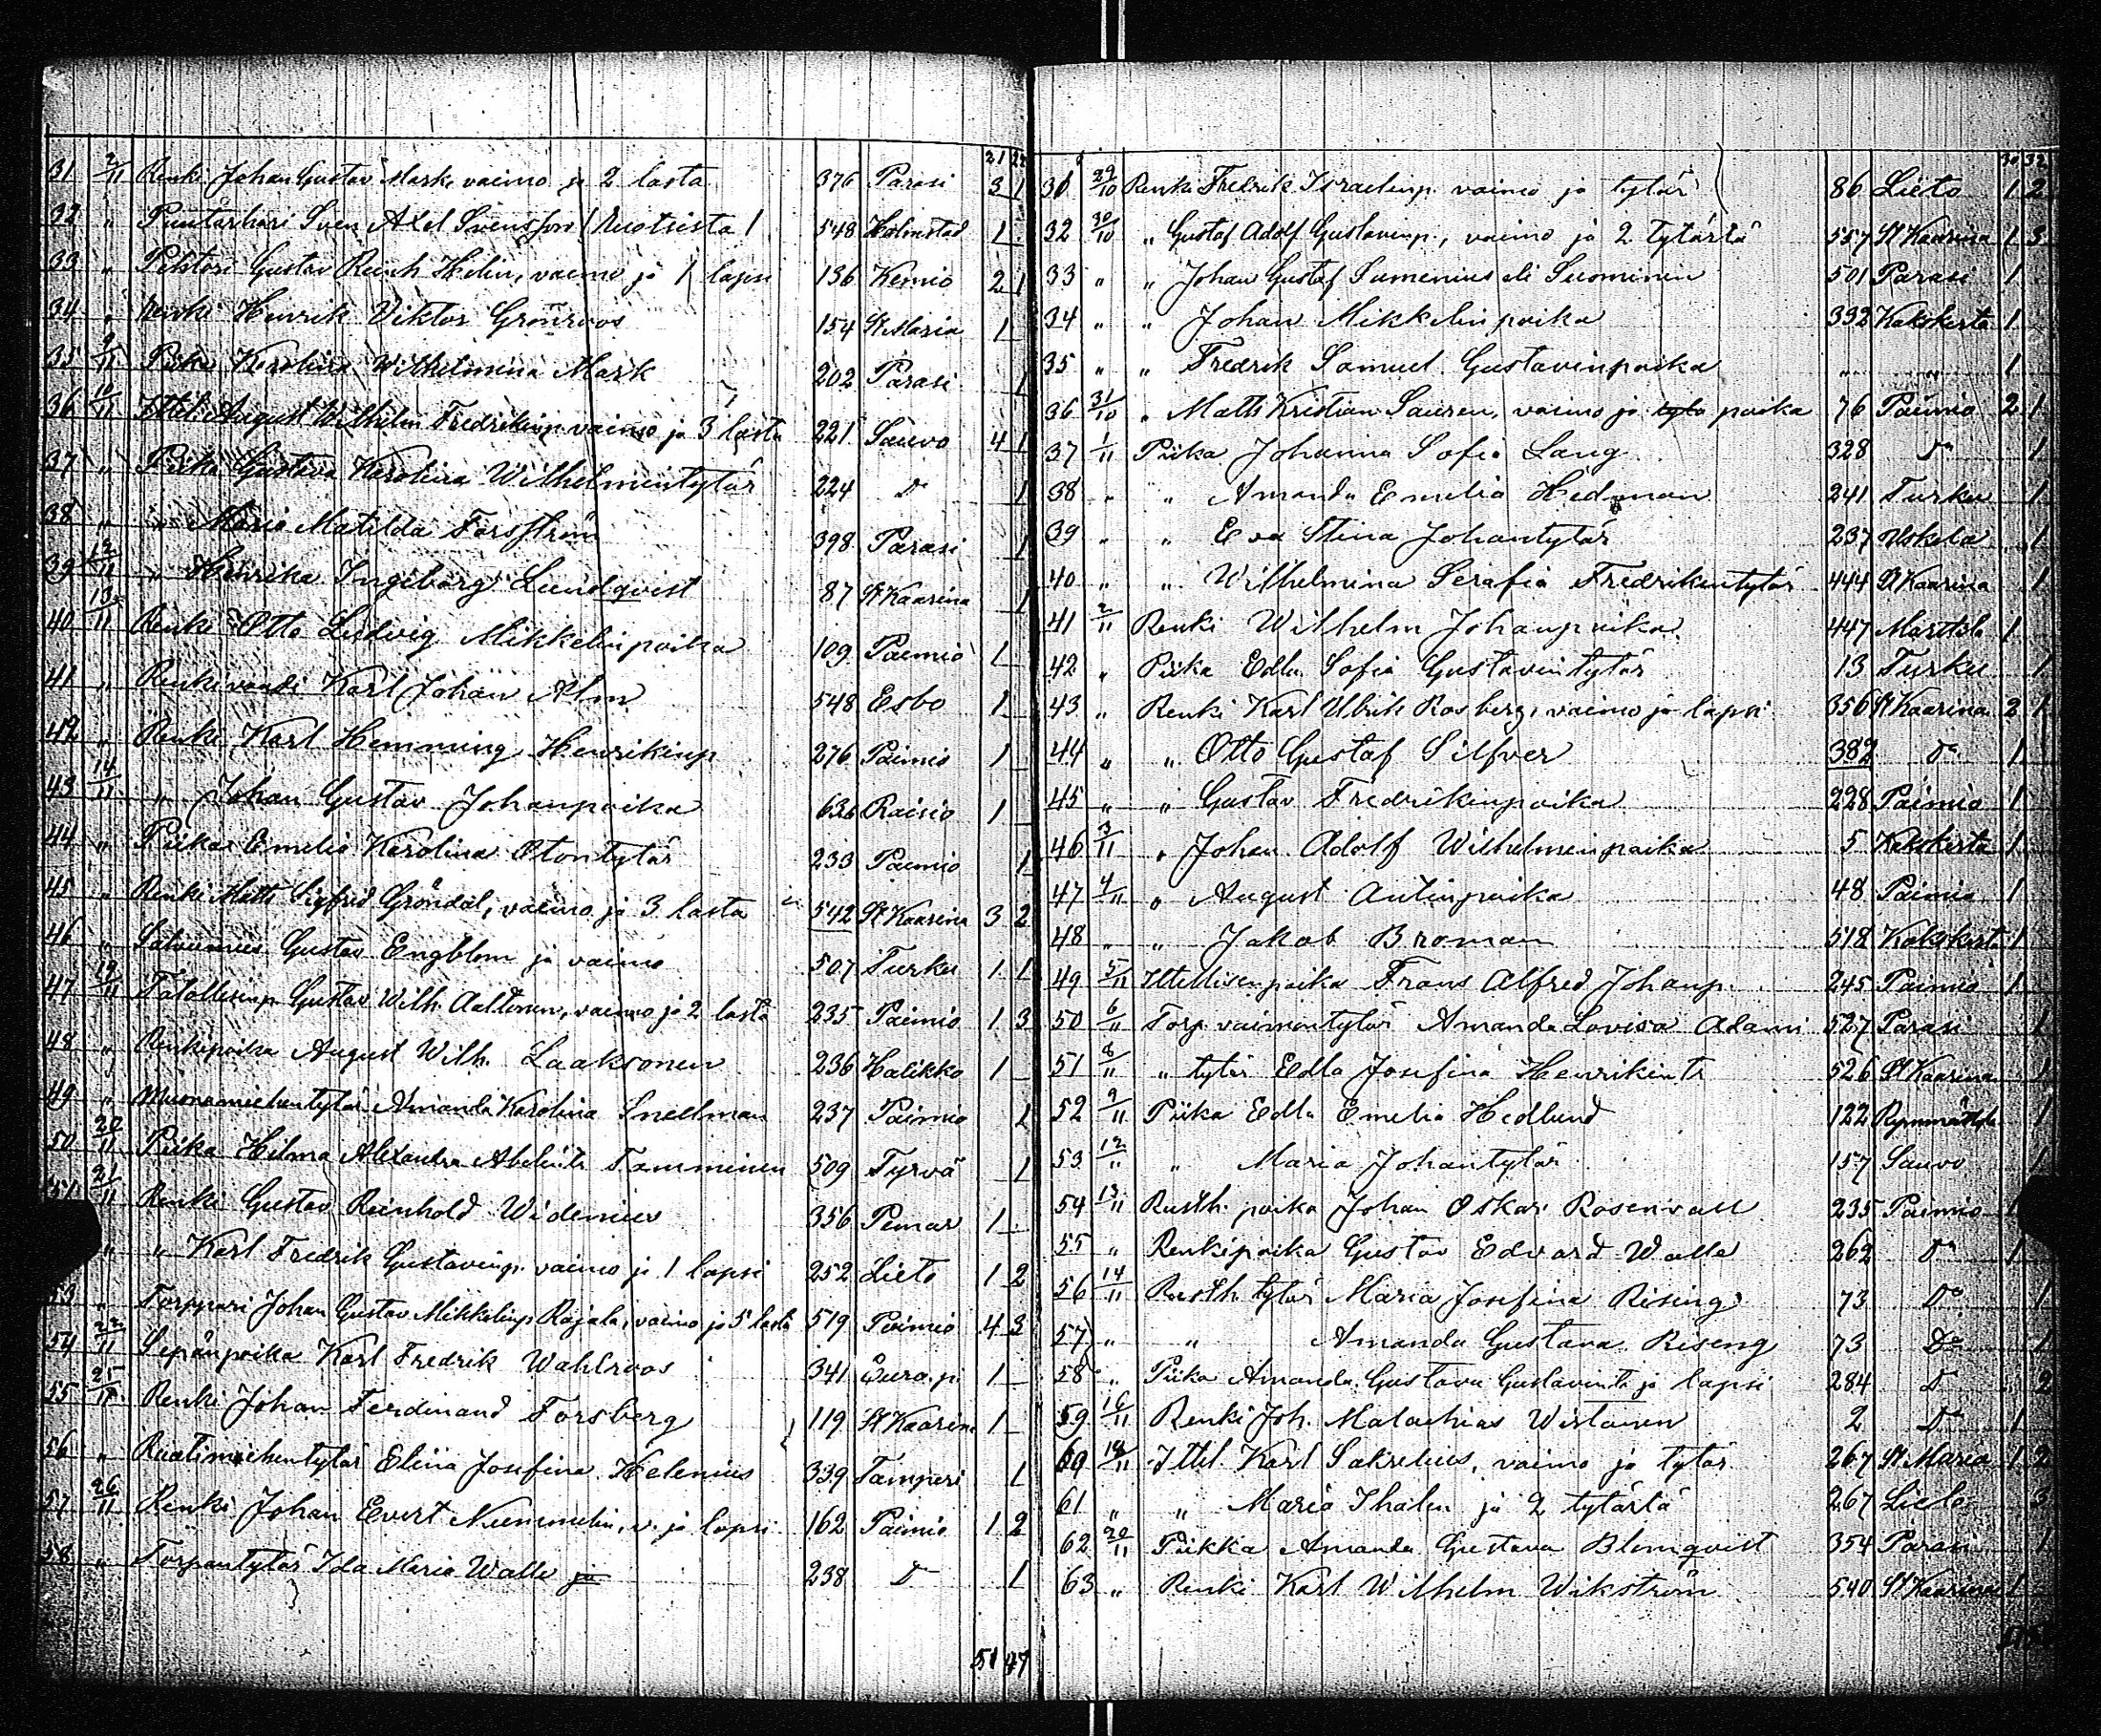 21 22
31 2/11 Renki Johan Gustav Mark, vaimo ja 2 lasta 376 Parasi 3 1
32 " Puutarhuri Sven Axel Svensson / Ruotsista / 548 Holmstad 1
33 " Gustav Helin, vaimo ja 1 lapsi 136 Kemio 2 1
34 " Renki Henrik Viktor Grönroos 154 St Maria 1
35 9/11 Piika Karolina Wilhelmina Mark 202 Parasi 1
36 10/11 Ittel. August Wilhelm Fredrikinp vaimo ja 3 lasta 221 Sauvo 4 1
37 " Piika Gustava Karolina Wilhelmintytär 224 Do 1
38 " " Maria Matilda Forsström 398 Parasi 1
39 12/11 " Henrika Ingeborg Lundqvist 87 St Kaarina 1
40 13/11 Renki Otto Ludvig Mikkelinpoika 109 Paimio 1
41 " Renkivouti Karl Johan Alm 548 Esbo 1
42 " Renki Karl Hemming Henrikinp 276 Paimio 1
43 14/11 " Johan Gustav Johanpoika 636 Raisio 1
44 " Piika Emelia Karolina Otontytär 233 Paimio 1
45 " Renki Matti Sigfrid Gröndal, vaimo ja 3 lasta 542 St Kaarina 3 2
46 " Gustav Engblom ja vaimo 507 Turku 1 1
47 19/11 Talollisenp Gustav Wilh. Aaltonen, vaimo ja 2 lasta 235 Paimio 1 3
48 " Renkipoika August Wilh. Laaksonen 236 Halikko 1
49 " Muonamiehentytär Amanda Karolina Snellman 237 Paimio 1
50 20/11 Piika Hilma Alexandra Abelintr Tamminen 509 Tyrvä 1
51 21/11 Renki Gustav Reinhold Widenius 356 Pemar 1
" " Karl Fredrik Gustavinp. vaimo ja 1 lapsi 252 Lieto 1 2
53 " Torppari Johan Gustav Mikkelinp Rajala, vaimo ja 5 lasta 519 Paimio 4 3
54 22/11 Sepänpoika Karl Fredrik Wahlroos 341 Eura. pi 1
55 25/11 Renki Johan Ferdinand Forsberg 119 St Kaarina 1
56 " Ruotimiehentytär Elina Josefina Helenius 339 Tamperi 1
57 26/11 Renki Johan Evert Nummelin, v. ja lapsi 162 Paimio 1 2
58 " Torpantytär Ida Maria Walle ja 238 Do 1
51 47
30 32
31 29/10 Renki Fredrik Israelinp. vaimo ja tytär 86 Lieto 1 2
32 30/10 " Gustaf Adolf Gustavinp., vaimo ja 2 tytärtä 557 St Kaarina 1 3
33 " " Johan Gustaf Sumenius eli Suominen 501 Parasi 1
34 " " Johan Mikkelinpoika 332 Kakskerta 1
35 " " Fredrik Samuel Gustavinpoika " " 1
36 31/10 " Matts Kristian Sauren, vaimo ja tyto poika 76 Paimio 2 1
37 1/11 Piika Johanna Sofia Lang 328 Do 1
38 " " Amanda Emelia Hedman 241 Turku 1
39 " " Eva Stina Johantytär 237 Uskela 1
40 " " Wilhelmina Serafia Fredrikintytär 444 St Kaarina 1
41 2/11 Renki Wilhelm Johanpoika 447 Marttila 1
42 " Piika Edla Sofia Gustavintytär 13 Turku 1
43 " Renki Karl Ulrik Rosberg, vaimo ja lapsi 356 St Kaarina 2 1
44 " " Otto Gustaf Silfver 382 Do 1
45 " " Gustav Fredrikinpoika 228 Paimio 1
46 3/11 " Johan Adolf Wilhelminpoika 5 Kakskerta 1
47 4/11 " August Antinpoika 48 Paimio 1
48 " " Jakob Broman 518 Kakskerta 1
49 5/11 Itellisenpoika Frans Alfred Johanp. 245 Paimio 1
50 6/11 Torp. vaimontytär Amanda Lovisa Adami 527 Parasi 1
51 8/11 " tytär Edla Josefina Henrikintr 526 St Kaarina 1
52 9/11 Piika Edla Emelia Hedlund 122 Rymmättylä 1
53 12/11 " Maria Johantytär 157 Sauvo 1
54 13/11 Rusth. poika Johan Oskar Rosenvall 235 Paimio 1
55 " Renkipoika Gustav Edvard Walle 262 Do 1
56 14/11 Rusth tytär Maria Josefina Rising 73 Do 1
57 " " Amanda Gustava Riseng 73 Do 1
58 " Piika Amanda Gustava Gustavintr ja lapsi 284 Do 2
59 16/11 Renki Joh. Malachias Wirtanen 2 Do 1
60 18/11 Ittel. Karl Sakrelius, vaimo ja tytär 267 St Maria 1 2
61 " " Maria Thalen ja 2 tytärtä 267 Lieto 3
62 20/11 Piikka Amanda Gustava Blomqvist 354 Parasi 1
63 " Renki Karl Wilhelm Wikström 540 St Kaarina 1